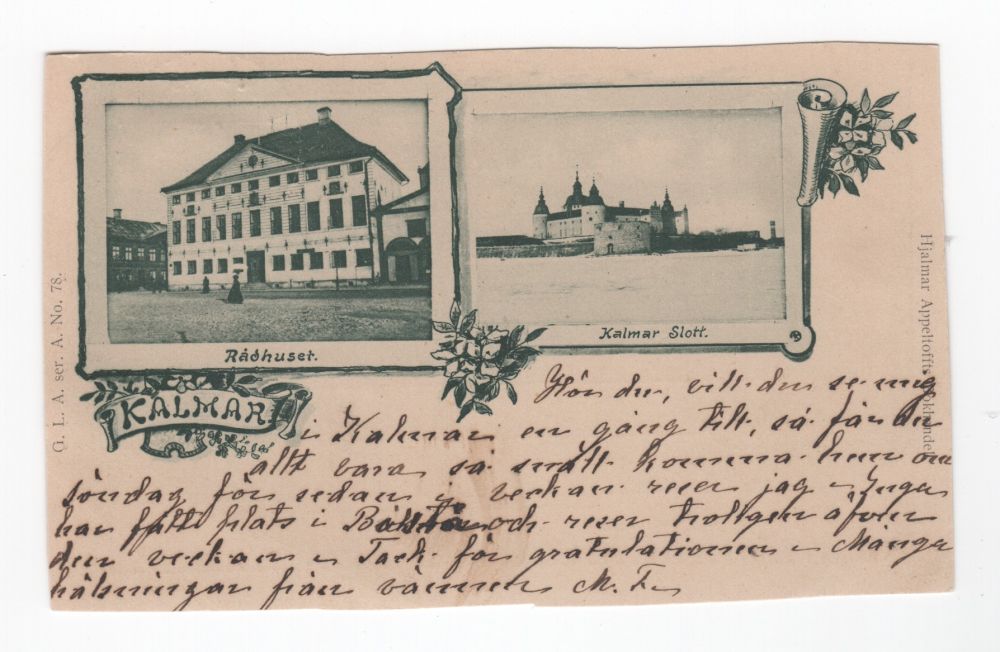 Rådhuset.
Kalmar Slott.
KALMAR.
G. L. A. ser. A. No. 78.
Hjalmar Appeltofft
Hör du, vill du se mig
i Kalmar en gång till, så får du
allt vara så snäll komma hem om
söndag för sedan i veckan reser jag - Inga
har fått plats i och reser troligen äfven
den veckan - Tack för gratulationen - Många
hälsningar från vännen M. F.